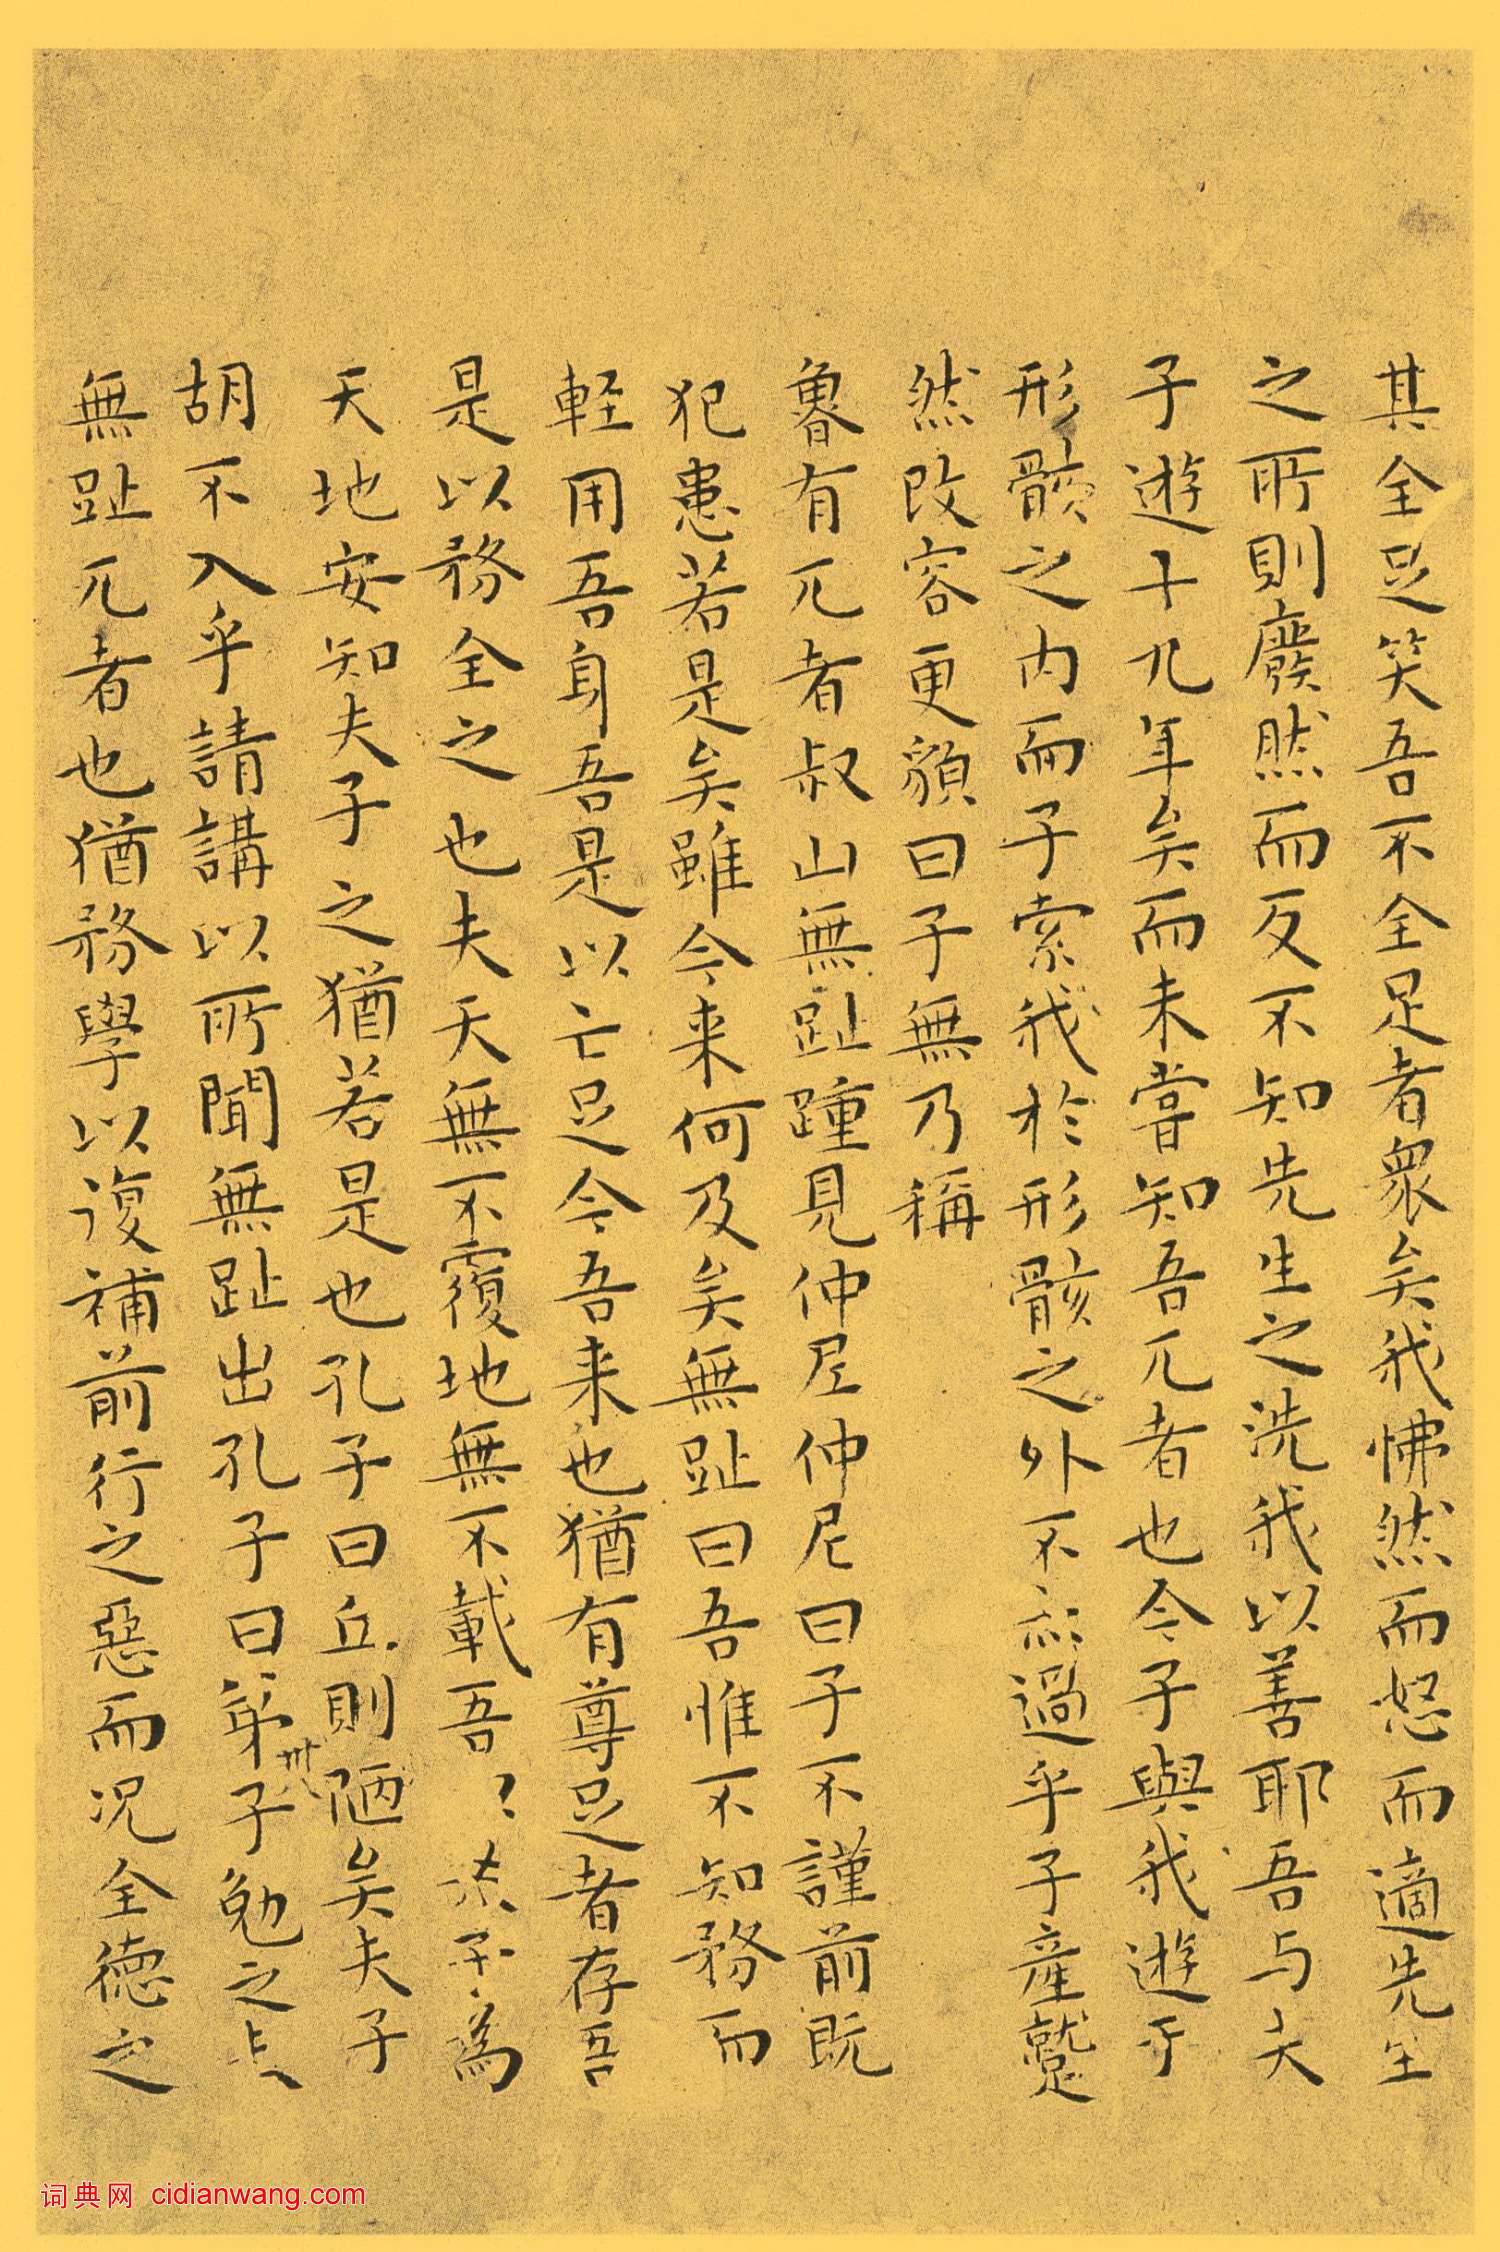 其全足笑吾不全足者衆矣我怫然而怒而適先生
之所則廢然而反不知先生之洗我以善耶吾与夫
子遊十九年矣而未嘗知吾兀者也今子與我遊于
形骸之内而子索我於形骸之外不亦過乎子產蹵
然改容更貌曰子無乃稱
魯有兀者叔山無趾踵見仲尼仲尼曰子不謹前既
犯患若是矣雖今来何及矣無趾曰吾惟不知務而
軽用吾身吾是以亡足今吾来也猶有尊足者存吾
是以務全之也夫天無不覆地無不載吾〻夫子為
天地安知夫子之猶若是也孔子曰丘則陋矣夫子
胡不入乎請講以所聞無趾出孔子曰弟子勉之夫
卅
無趾兀者也猶務學以復補前行之惡而况全德之
词典网 cidianwang.com